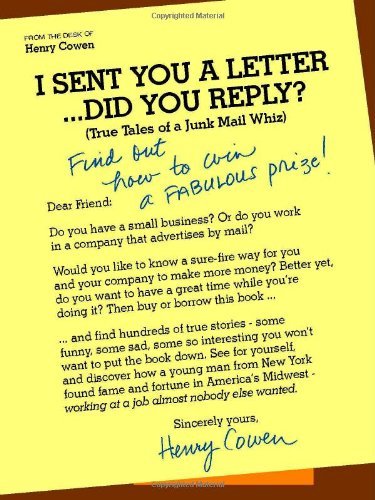 Copyrighted Material
FROM THE DESK OF
Henry Cowen
I SENT YOU A LETTER
...DID YOU REPLY?
(True Tales of a Junk Mail Whiz)
Find out
how to win
a FABULOUS prize!
Dear Friend:
Do you have a small business? Or do you work
in a company that advertises by mail?
Would you like to know a sure-fire way for you
and your company to make more money? Better yet,
do you want to have a great time while you're
doing it? Then buy or borrow this book ...
... and find hundreds of true stories - some
funny, some sad, some so interesting you won't
want to put the book down. See for yourself,
and discover how a young man from New York
found fame and fortune in America's Midwest -
working at a job almost nobody else wanted.
Sincerely yours,
Henry Cowen
Copyrighted Material